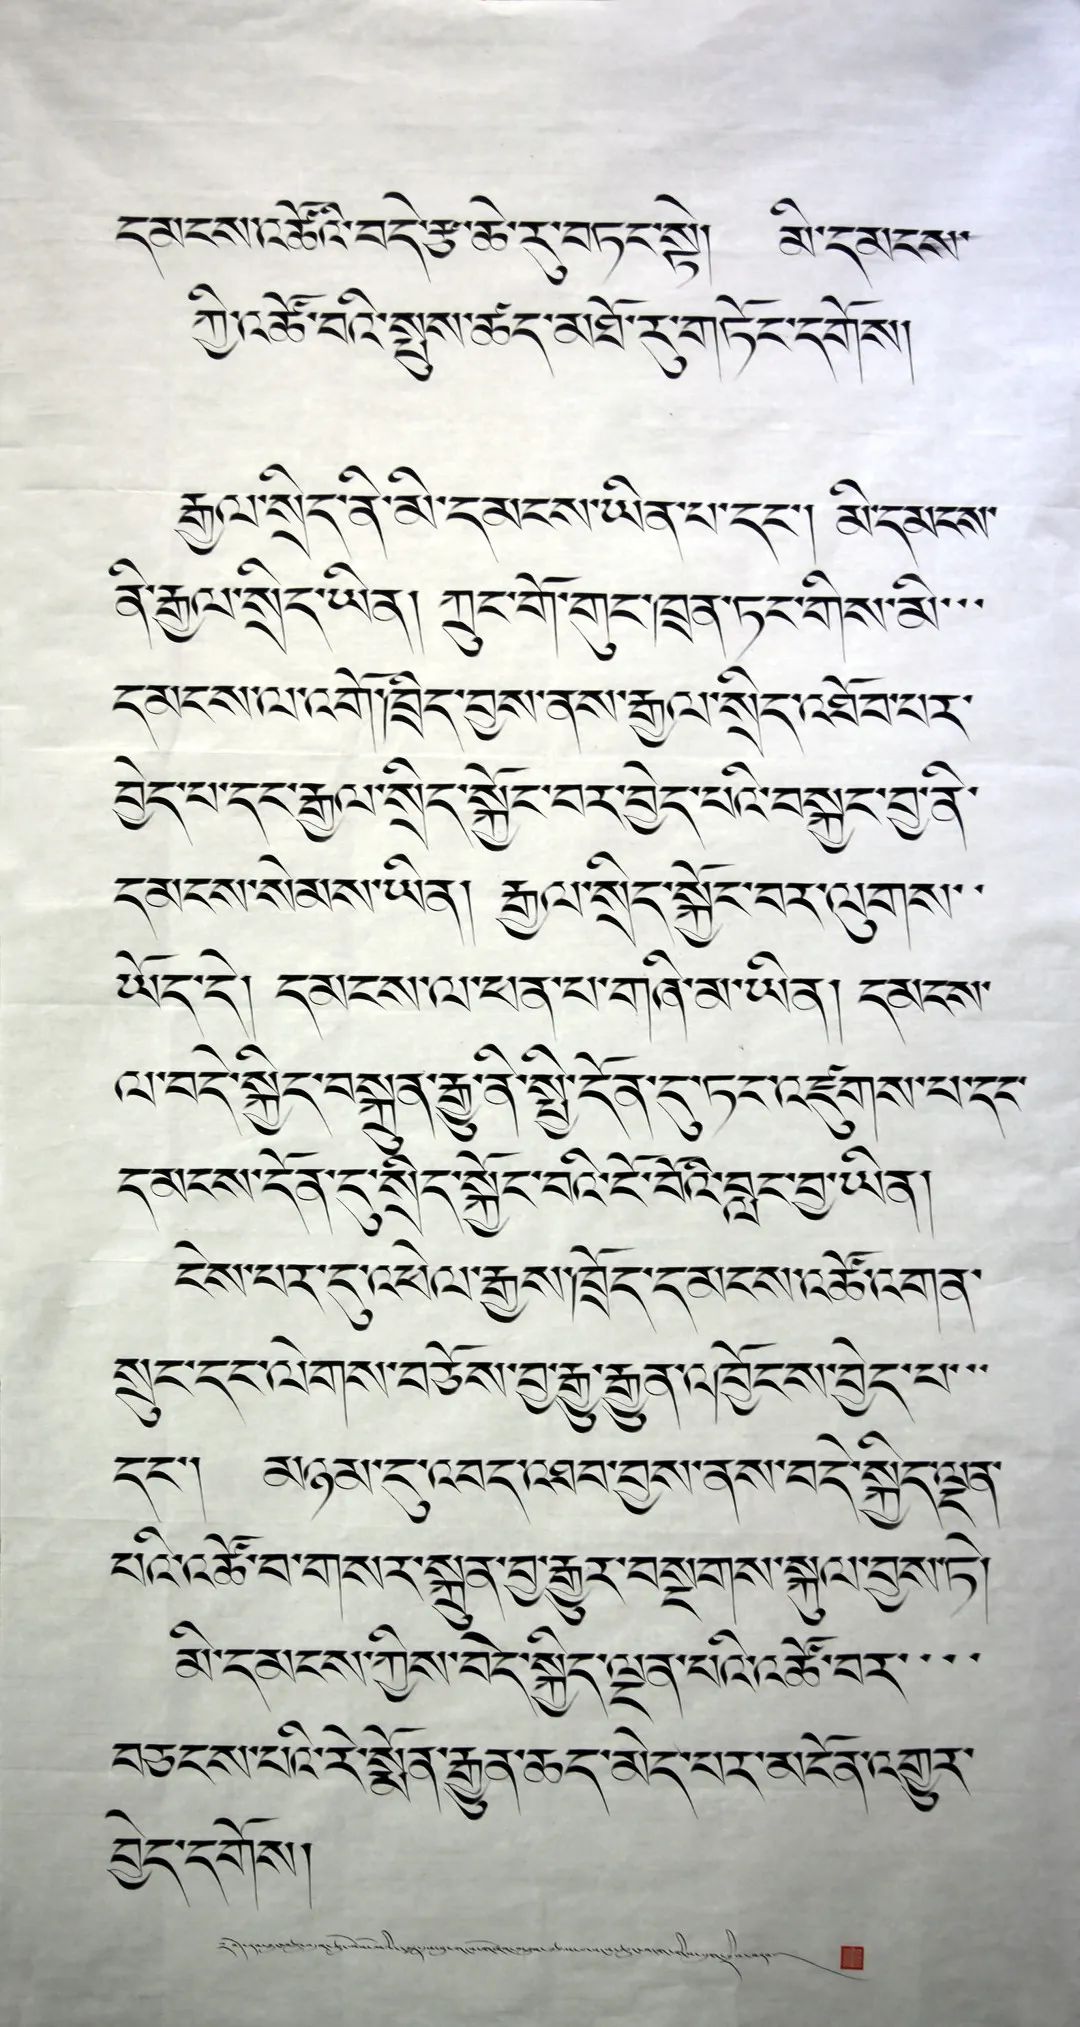 དམངས་འཚོའི་བདེ་རྩ་ཆེ་རུ་བཏང་སྟེ། མི་དམངས་
ཀྱི་འཚོ་བའི་སྤུས་ཚད་མཐོ་རུ་གཏོང་དགོས།
རྒྱལ་སྲིད་ནི་མི་དམངས་ཡིན་པ་དང་། མི་དམངས་
ནི་རྒྱལ་སྲིད་ཡིན། ཀྲུང་གོ་གུང་ཁྲན་ཏང་གིས་མི་་་
དམངས་ལ་འགོ་ཁྲིད་བྱས་ནས་རྒྱལ་སྲིད་འཐོབ་པར་
བྱེད་པ་དང་རྒྱལ་སྲིད་སྐྱོང་བར་བྱེད་པའི་བསྐྱང་བྱ་ནི་
དམངས་སེམས་ཡིན། རྒྱལ་སྲིད་སྐྱོང་བར་ལུགས་་་
ཡོད་དེ། དམངས་ལ་ཕན་པ་གཞི་མ་ཡིན། དམངས་
ལ་བདེ་སྐྱིད་བསྐྲུན་རྒྱུ་ནི་སྤྱི་དོན་དུ་ཏང་འཛུགས་པ་དང་
དམངས་དོན་དུ་སྲིད་སྐྱོང་བའི་ངོ་བོའི་བླང་བྱ་ཡིན།
ངེས་པར་དུ་འཕེལ་རྒྱས་ཁྲོད་དམངས་འཚོ་འགན་
སྲུང་དང་ལེགས་བཅོས་བྱ་རྒྱུ་རྒྱུན་འཁྱོངས་བྱེད་པ་་་
དང་། མཉམ་དུ་འབད་འཐབ་བྱས་ནས་བདེ་སྐྱིད་ལྡན་
པའི་འཚོ་བ་གསར་སྐྲུན་བྱ་རྒྱུར་བསྔགས་སྐུལ་བྱས་ཏེ།
མི་དམངས་ཀྱིས་བདེ་སྐྱིད་ལྡན་པའི་འཚོ་བར་་་་་
བཅངས་པའི་རེ་སྨོན་རྒྱུན་ཆད་མེད་པར་མངོན་འགྱུར་
བྱེད་དགོས།།